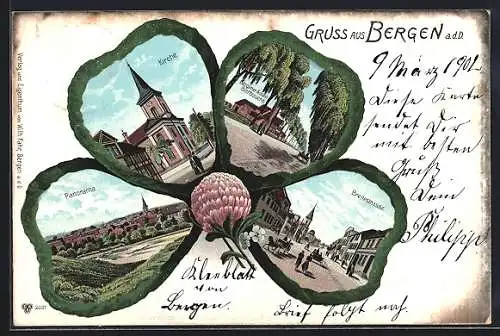 GRUSS AUS BERGEN a.d.D.
Kirche
Panorama
Breitestrasse
Verlag und Eigenthum von Wilh. Fahr, Bergen a.d.D.
9 März 1902
Diese Karte
sendet Dir
mit besten
Gruß
Dein
Philipp
Kleeblatt
von
Bergen.
Brief folgt nach.